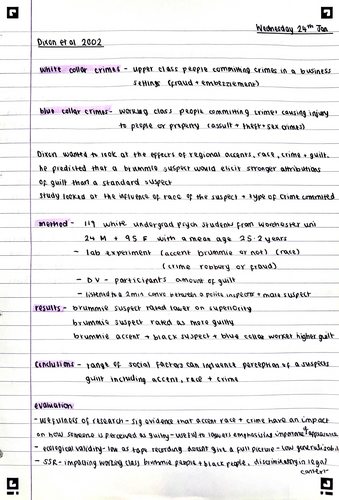 Wednesday 24th Jan
Dixon et al 2002
white collar crimes - upper class people committing crimes in a business
settings (fraud + embezzlement)
blue collar crimes - working class people committing crimes causing injury
to people or property (assult + theft + sex crimes)
Dixon wanted to look at the effects of regional accents, race, crime + guilt.
he predicted that a brummie suspect would elicit stronger attributions
of guilt than a standard suspect
study looked at the influence of race of the suspect + type of crime committed
method - 119 white undergrad psych students from worchester uni
24 M + 95 F with a mean age 25.2 years
- lab experiment (accent brummie or not) (race)
(crime robbery or fraud)
- DV - participants amount of guilt
- listened to a 2min convo between a police inspector + male suspect
results - brummie suspect rated lower on superiority
brummie suspect rated as more guilty
brummie accent + black suspect + blue collar worker higher guilt
conclutions - range of social factors can influence perception of a suspects
guilt including accent, race + crime
evaluation
- usefulness of research - sig evidence that accent race + crime have an impact
on how someone is perceived as guilty - useful to lawyers emphasises importance of appearance
- ecological validity - low as tape recording doesnt give a full picture - low generalisability
- SSR - impacting working class brummie people + black people, discriminating in legal
context